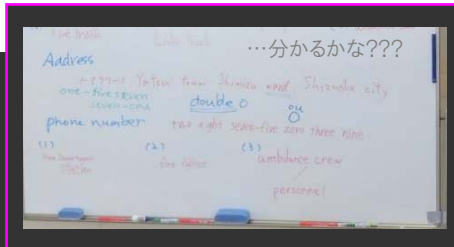 …分かるかな???
Fire truck
Address
Yatsu town Shimizu ward, Shizuoka city
one-five seven
seven-one
double O
ou
O
phone number
two eight seven-five zero three nine
(1) (2) (3)
Fire Department
station
fire
ambulance crew
personnel